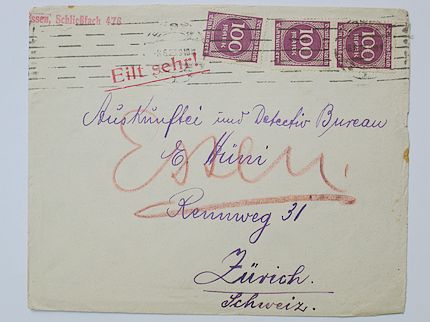 Essen, Schließfach 476
100
100
100
Eilt sehr!
Auskunftei und Detectiv Bureau
E. Hüni
Essen.
Rennweg 31
Zürich.
Schweiz.